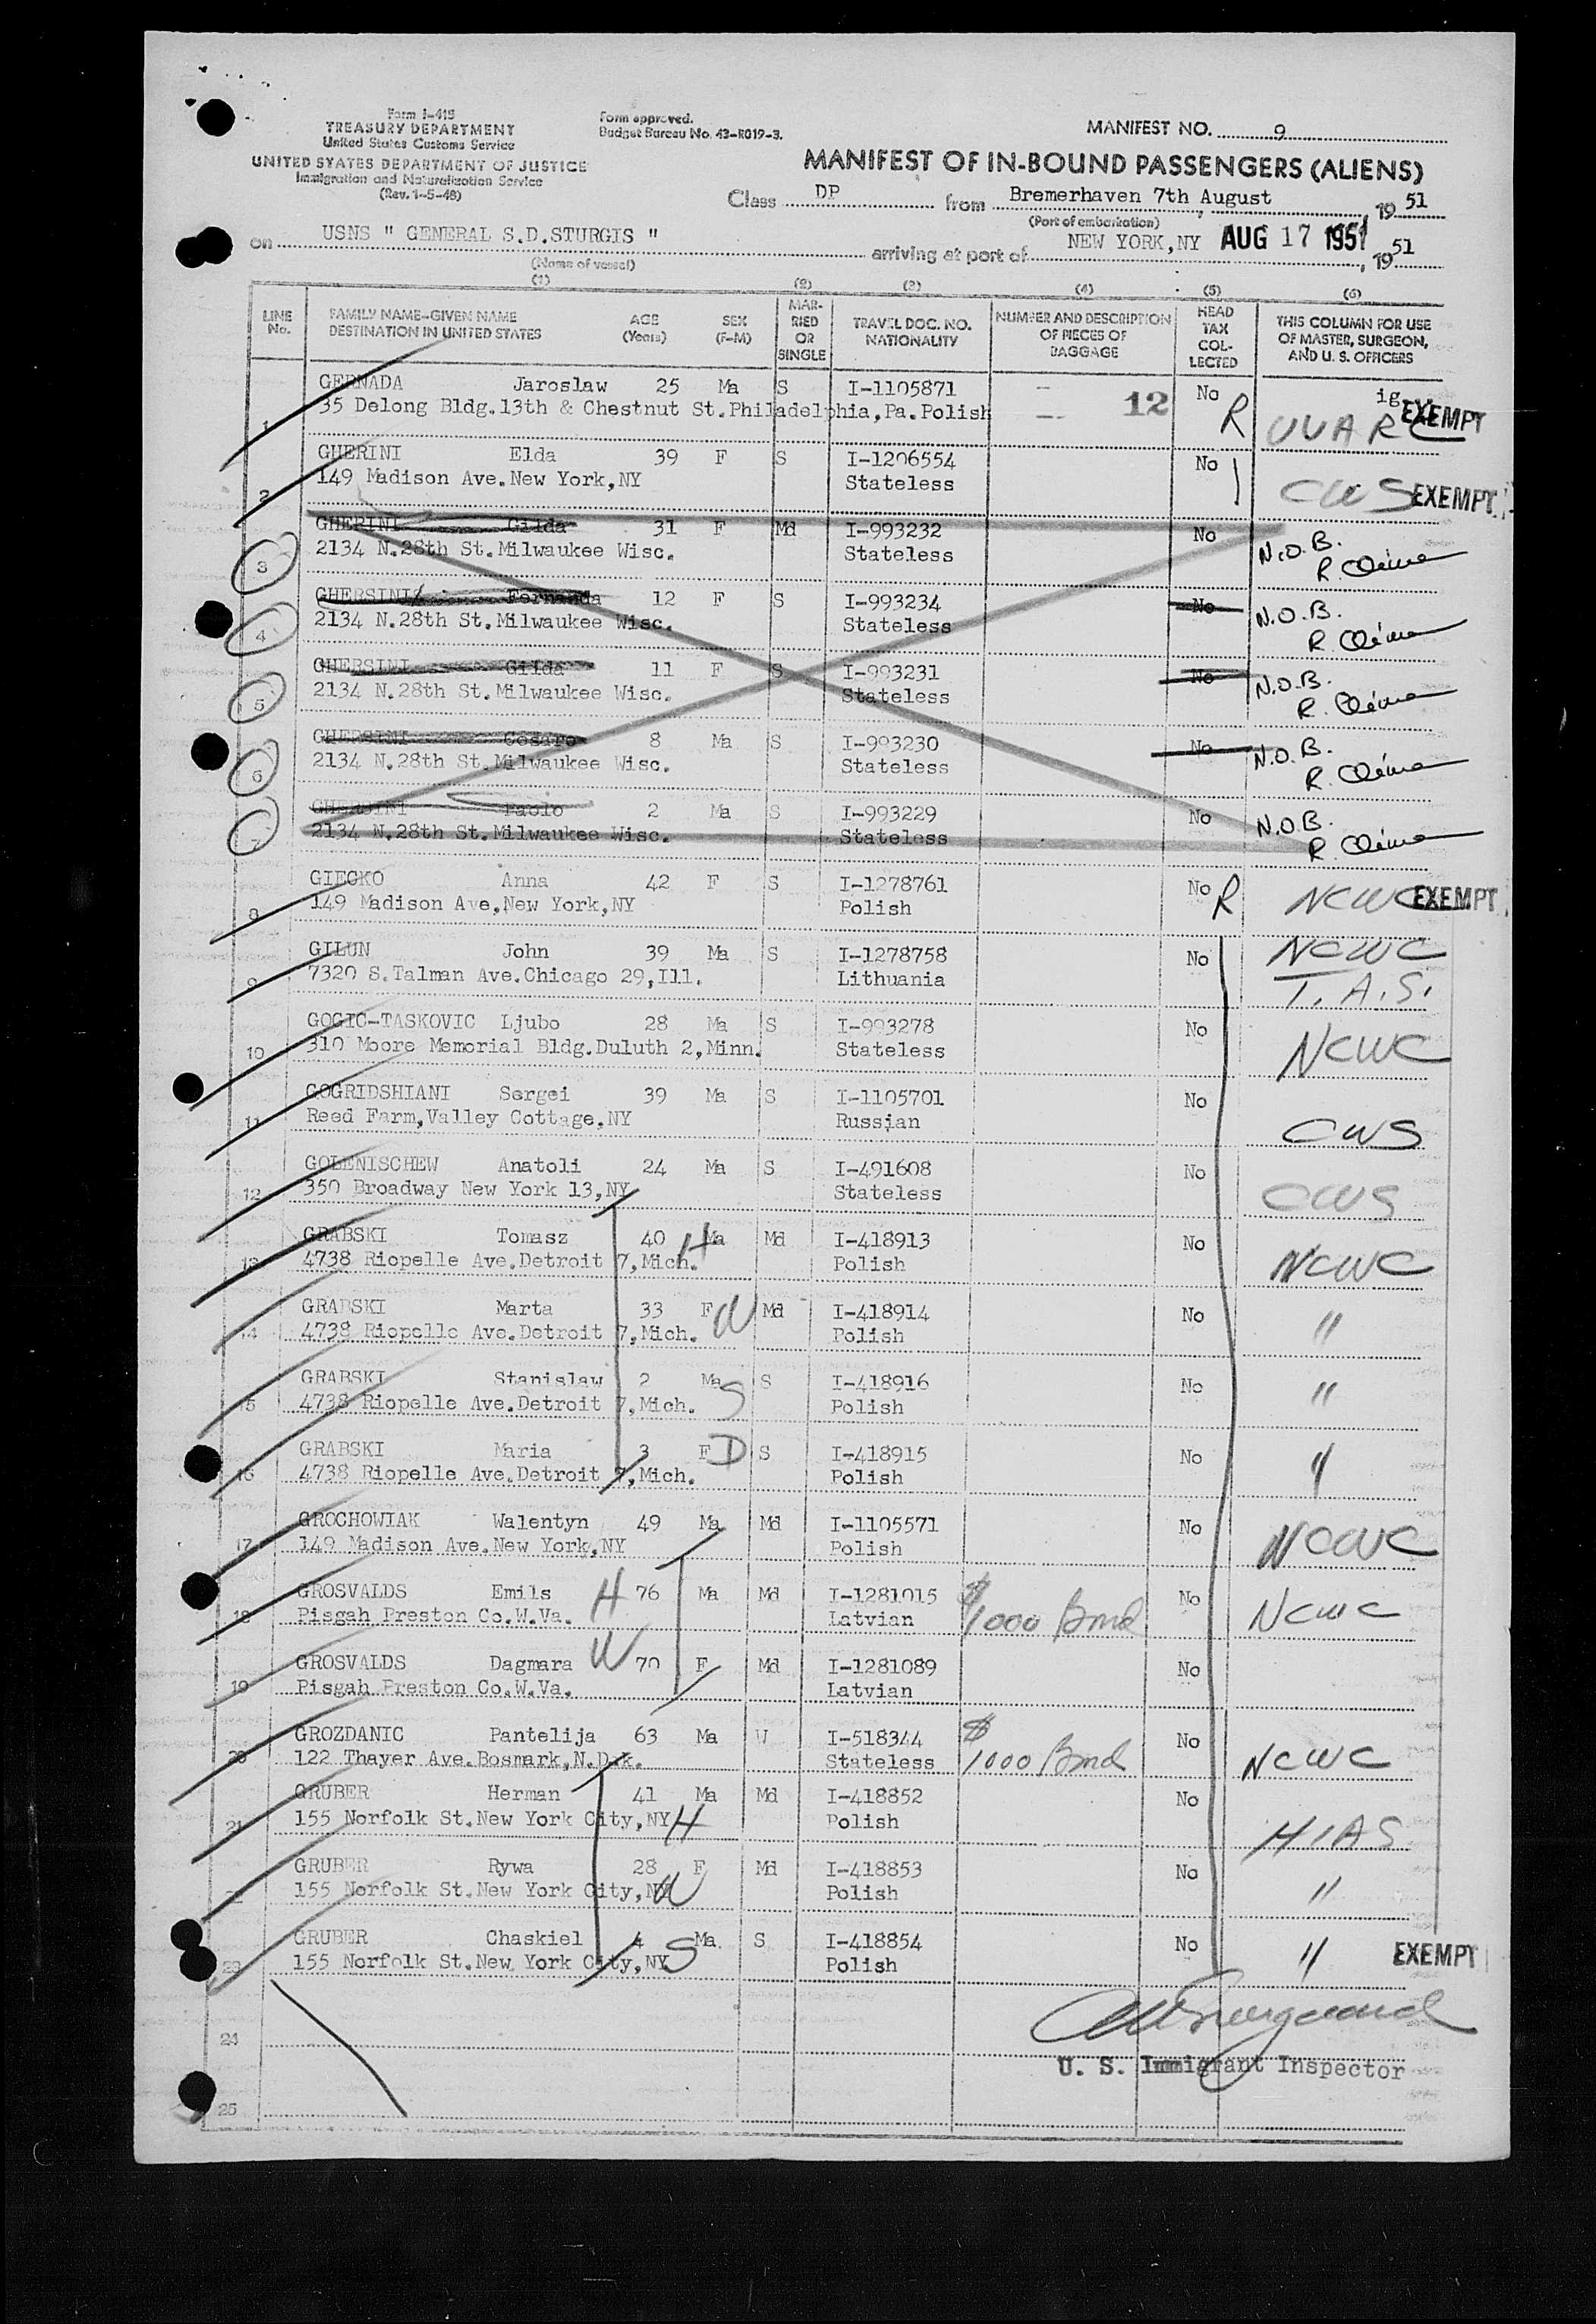 Form I-415
TREASURY DEPARTMENT
United States Customs Service
UNITED STATES DEPARTMENT OF JUSTICE
Immigration and Naturalization Service
(Rev. 1-5-48)
Form approved.
Budget Bureau No. 43-R019-3.
MANIFEST NO. 9
MANIFEST OF IN-BOUND PASSENGERS (ALIENS)
Class DP from Bremerhaven 7th August, 1951
(Port of embarkation)
on USNS " GENERAL S.D.STURGIS " arriving at port of NEW YORK,NY AUG 17 1951, 1951
(Name of vessel)
(1) (2) (3) (4) (5) (6)
LINE No. FAMILY NAME-GIVEN NAME DESTINATION IN UNITED STATES AGE (Years) SEX (F-M) MARRIED OR SINGLE TRAVEL DOC. NO. NATIONALITY NUMBER AND DESCRIPTION OF PIECES OF BAGGAGE HEAD TAX COLLECTED THIS COLUMN FOR USE OF MASTER, SURGEON, AND U. S. OFFICERS
GERNADA Jaroslaw 25 Ma S I-1105871 12 No R ig EXEMPT
1 35 Delong Bldg.13th & Chestnut St.Philadelphia,Pa.Polish UUARC
GHERINI Elda 39 F S I-1206554 No
2 149 Madison Ave.New York,NY Stateless CWS EXEMPT
GHERINI Gilda 31 F Md I-993232 No N.O.B.
3 2134 N.28th St.Milwaukee Wisc. Stateless
GHERSINI Fernanda 12 F S I-993234 No N.O.B.
4 2134 N.28th St.Milwaukee Wisc. Stateless
GHERSINI Gilda 11 F S I-993231 No N.O.B.
5 2134 N.28th St.Milwaukee Wisc. Stateless
GHERSINI 8 Ma S I-993230 No N.O.B.
6 2134 N.28th St.Milwaukee Wisc. Stateless
GHERSINI Paolo 2 Ma S I-993229 No N.O.B.
7 2134 N.28th St.Milwaukee Wisc. Stateless
GIECKO Anna 42 F S I-1278761 No R NCWC EXEMPT
8 149 Madison Ave,New York,NY Polish
GILUN John 39 Ma S I-1278758 No NCWC
9 7320 S.Talman Ave.Chicago 29,Ill. Lithuania T.A.S.
GOGIC-TASKOVIC Ljubo 28 Ma S I-993278 No
10 310 Moore Memorial Bldg.Duluth 2,Minn. Stateless NCWC
GOGRIDSHIANI Sergei 39 Ma S I-1105701 No
11 Reed Farm,Valley Cottage,NY Russian CWS
GOLENISCHEW Anatoli 24 Ma S I-491608 No
12 350 Broadway New York 13,NY Stateless CWS
GRABSKI Tomasz 40 Ma H Md I-418913 No
13 4738 Riopelle Ave.Detroit 7,Mich. Polish NCWC
GRABSKI Marta 33 F W Md I-418914 No
14 4738 Riopelle Ave.Detroit 7,Mich. Polish "
GRABSKI Stanislaw 2 Ma S S I-418916 No
15 4738 Riopelle Ave.Detroit 7,Mich. Polish "
GRABSKI Maria 3 F D S I-418915 No
16 4738 Riopelle Ave.Detroit 7,Mich. Polish "
GROCHOWIAK Walentyn 49 Ma Md I-1105571 No
17 149 Madison Ave.New York,NY Polish NCWC
GROSVALDS Emils H 76 Ma Md I-1281015 No
18 Pisgah Preston Co.W.Va. Latvian $1000 Bond NCWC
GROSVALDS Dagmara W 70 F Md I-1281089 No
19 Pisgah Preston Co.W.Va. Latvian
GROZDANIC Pantelija 63 Ma W I-518344 No
20 122 Thayer Ave.Bosmark,N.Dak. Stateless $1000 Bond NCWC
GRUBER Herman 41 Ma Md I-418852 No
21 155 Norfolk St.New York City,NY H Polish HIAS
GRUBER Rywa 28 F Md I-418853 No
22 155 Norfolk St.New York City,NY W Polish "
GRUBER Chaskiel 4 Ma S I-418854 No
23 155 Norfolk St.New York City,NY S Polish " EXEMPT
24
U. S. Immigrant Inspector
25